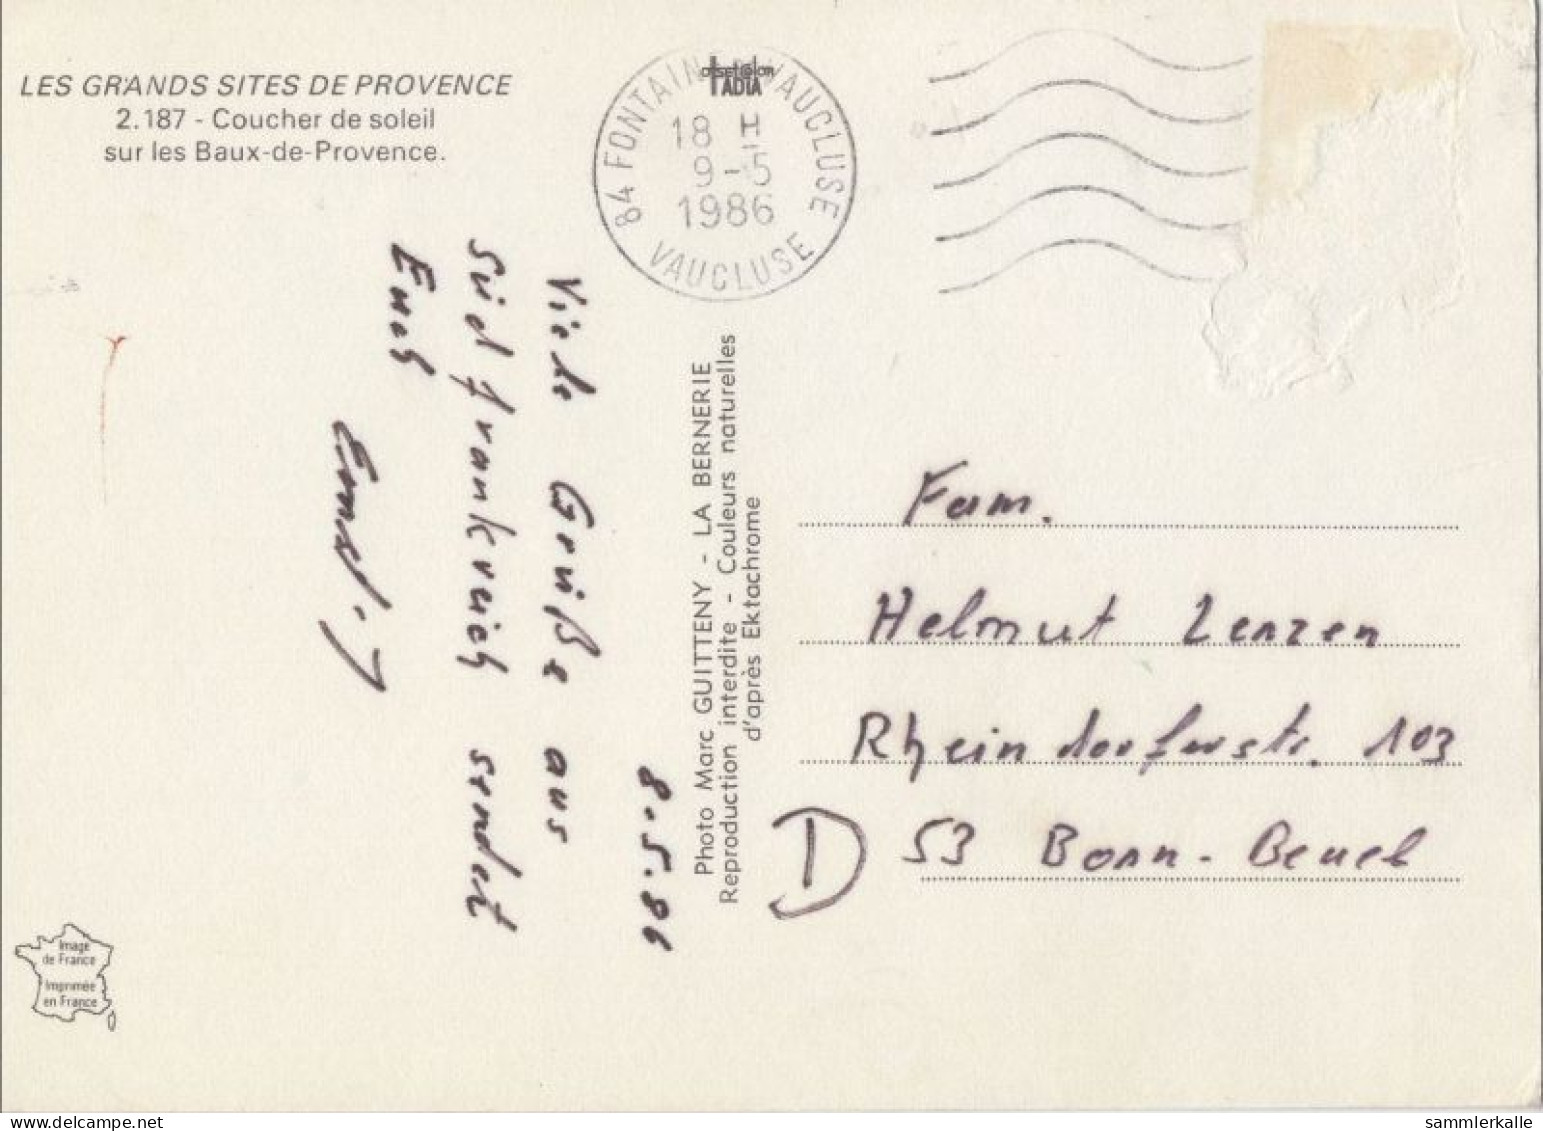 LES GRANDS SITES DE PROVENCE
2.187 - Coucher de soleil
sur les Baux-de-Provence.
84 FONTAINE VAUCLUSE
18 H
9-5
1986
VAUCLUSE
8.5.86
Viele Grüße aus
Südfrankreich sendet
Euch
Ernst
Photo Marc GUITTENY - LA BERNERIE
Reproduction interdite - Couleurs naturelles
d'après Ektachrome
Fam.
Helmut Lenzen
Rheindorferstr. 103
D 53 Bonn-Beuel
Image
de France
Imprimée
en France
delcampe.net
sammlerkalle